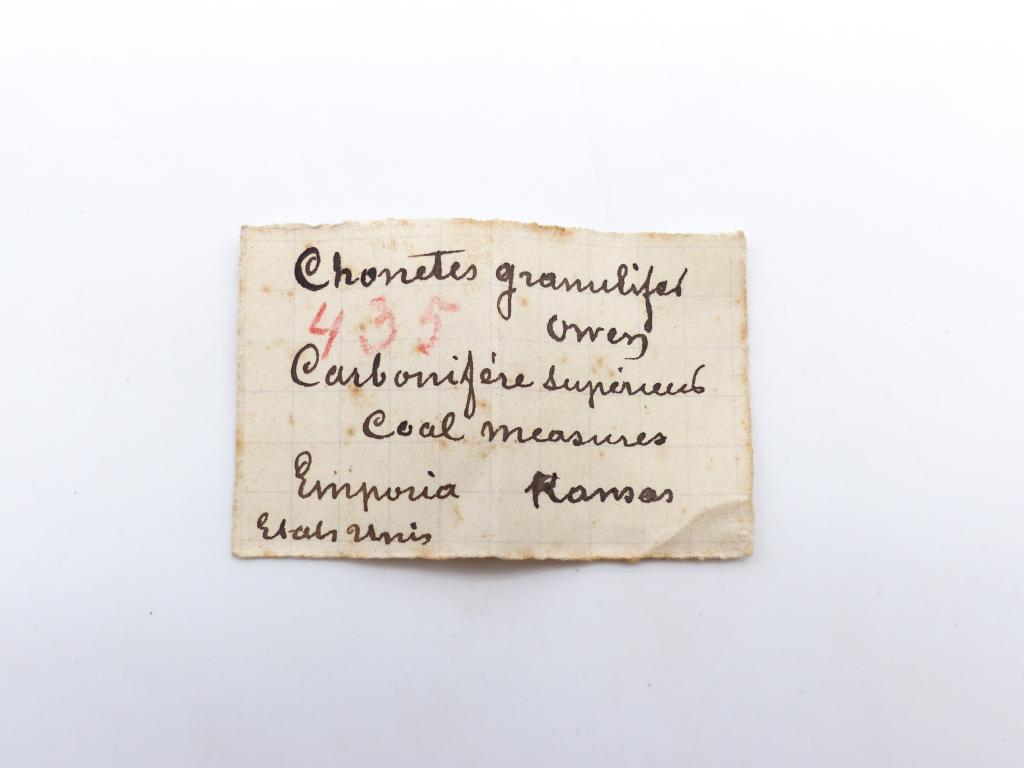 Chonetes granulifer
435 Owen
Carbonifére supérieur
Coal measures
Emporia Kansas
Etats Unis